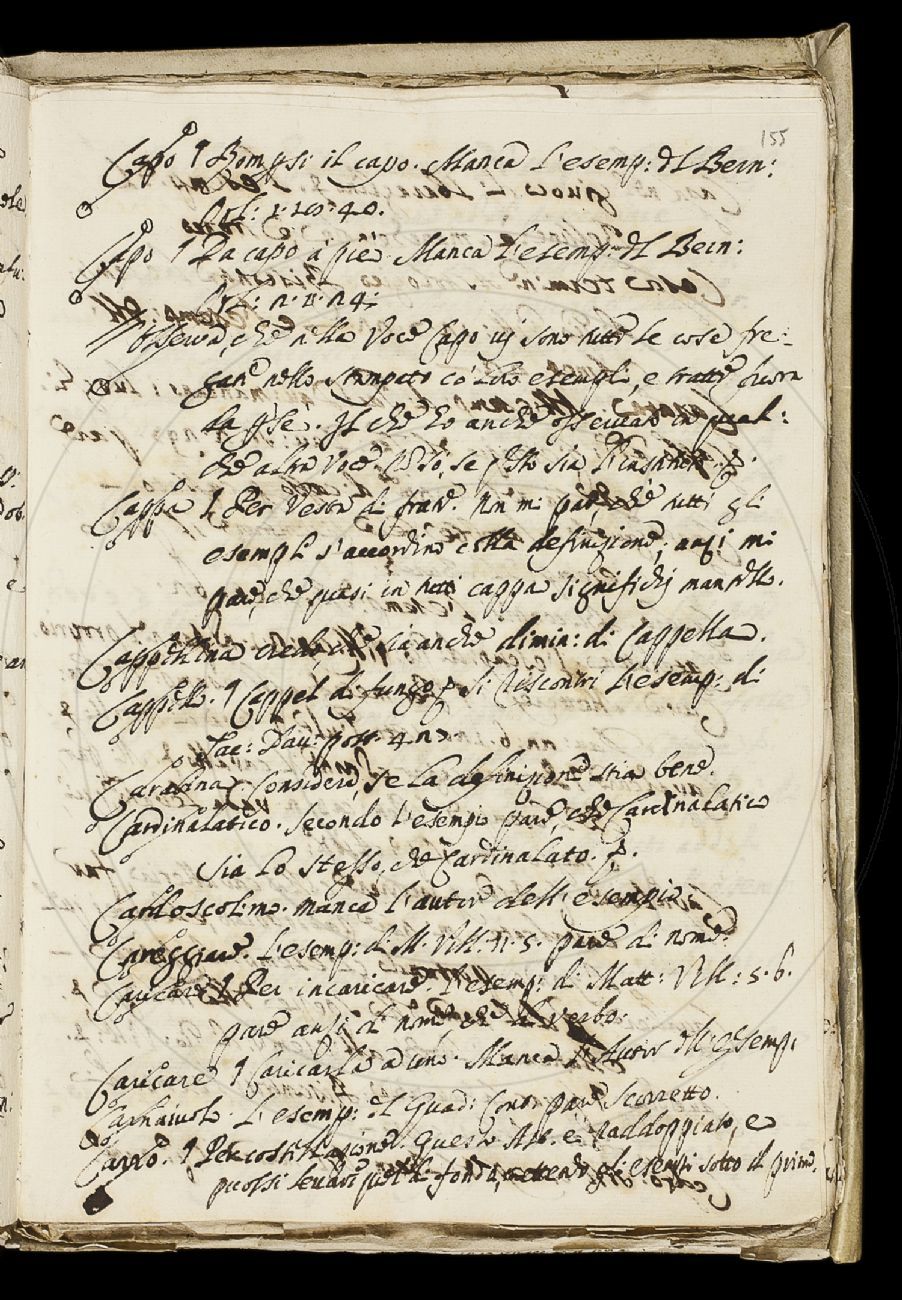 155
Capo ¶ Rompersi il capo. Manca l'esemp: dl Bern:
Orl: 1. 20. 40.
Capo ¶ Da capo à piè. Manca l'esemp: dl Bern:
Orl: 2. 11. 24.
Osserva, che nlla Voce Capo vi sono tutte le cose fre-
gate nello stampato co' loro esempli, e tratte fuora
da se. Il che ho anche osservato in qual-
che altra Voce. se qsto sia
Cappa ¶ Per Veste di frate. Non mi pare, che tutti gli
esempli s'accordino colla definizione, anzi mi
pare, che quasi in tutti cappa significhi mantello.
Cappellina credo, che sia anche dimin: di Cappella.
Cappello. ¶ Cappel di fungo si riscontri l'esemp: di
Tac: Dav: post. 427
Considera, se la definizione stia bene.
Cardinalatico. Secondo l'esempio pare, che Cardinalatico
sia lo stesso, che Cardinalato.
manca l'autore dell'esempio.
Careggiare. L'esemp: di M. Vill. 11. 5. pare di nome.
Caricare ¶ Per incaricare. L'esemp: di Matt: Vill: 5. 6.
pare anzi di nome che di Verbo.
Caricare ¶ Caricarla ad uno. Manca l'Autor dll'Esemp:
Carnaiuolo. L'esemp: dl Quad: Cont: pare scorretto.
Carro. ¶ Per costellazione. Questo e raddoppiato, e
puossi levare mettendo gli esempi sotto il primo.